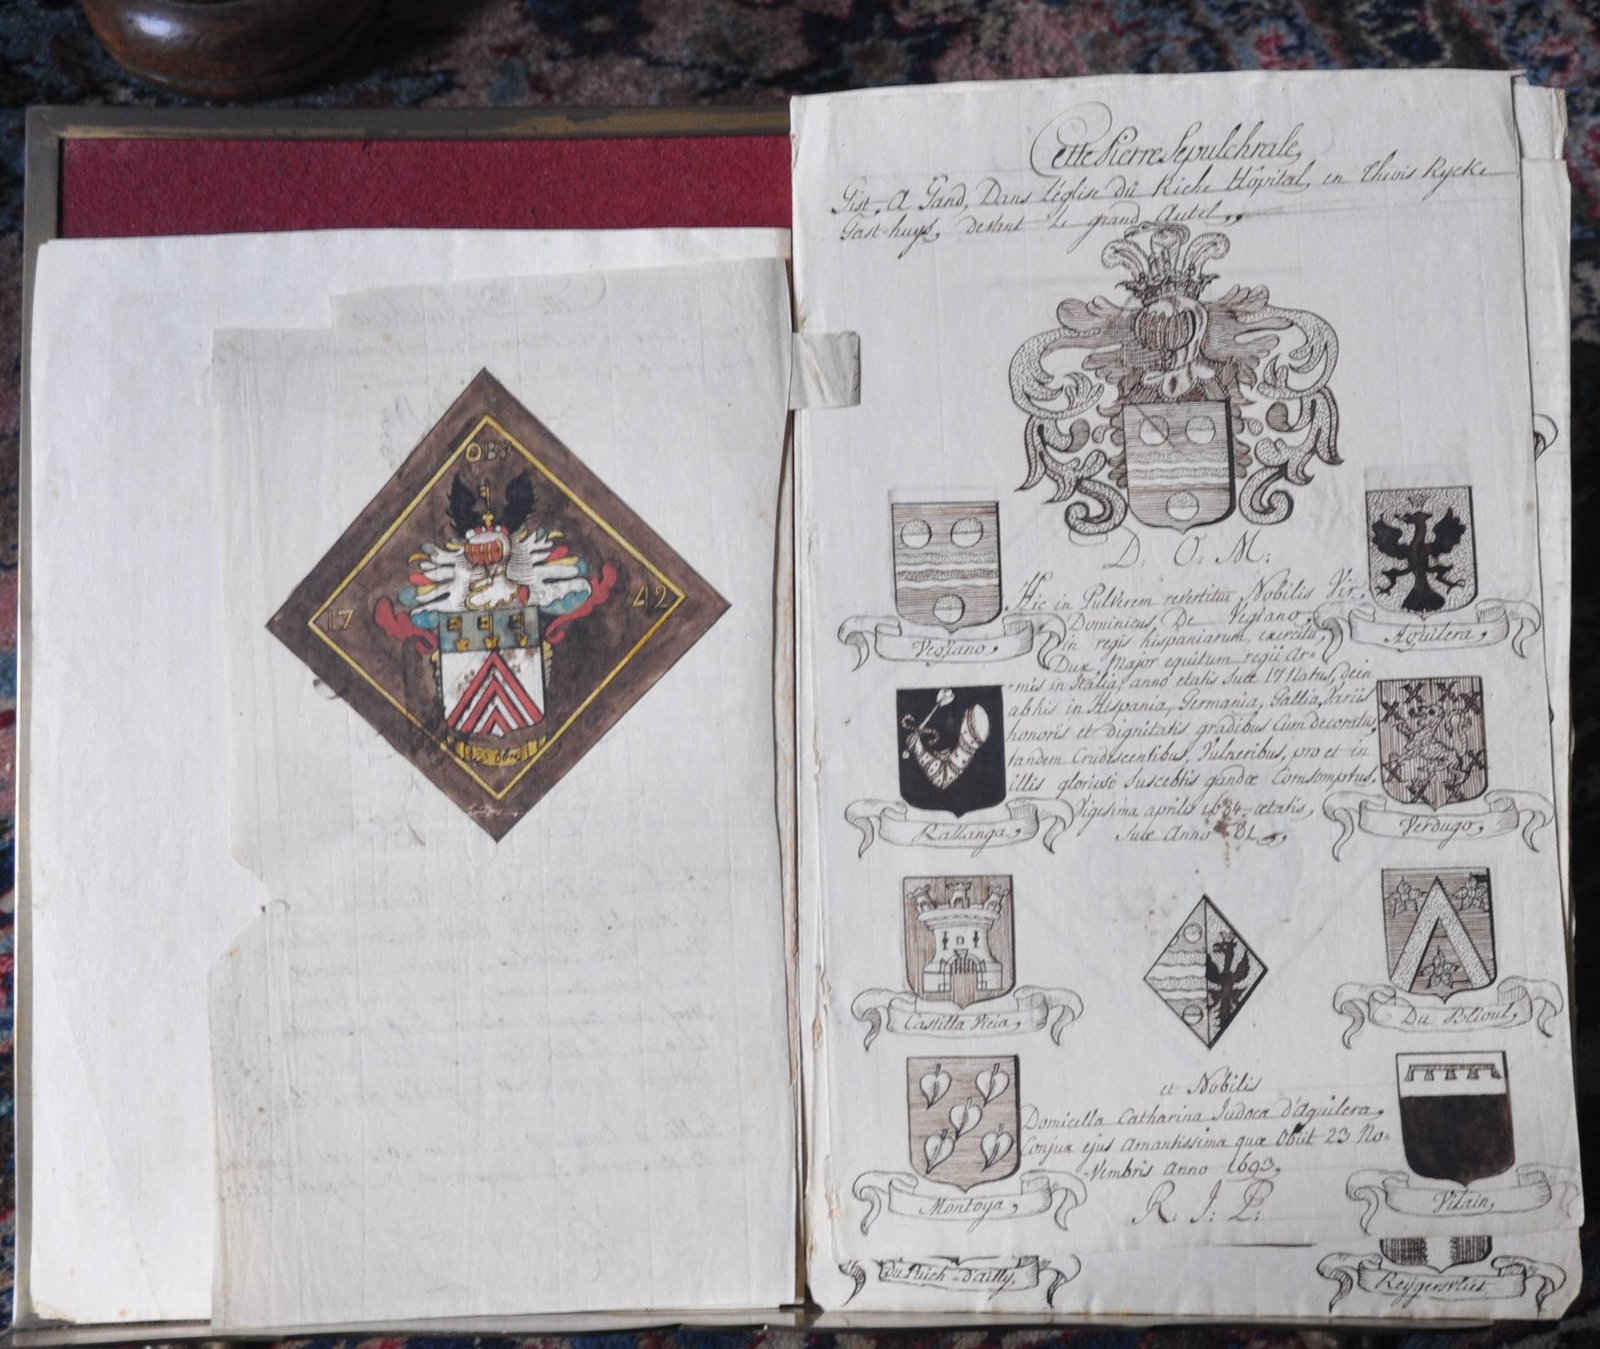 OBY
17
42
Cette Pierre Sepulchrale,
Gist, A Gand, Dans L'église Du Riche Hôpital, en Rycke
Gast-huys, devant le grand Autel,,
D. O. M:
Hic in Pulverem revertitur Nobilis Vir,
Dominicus, De Vegiano,
in regis hispaniarum, exercitu,
Dux, Major equitum regii Ar=
=mis in Italia, anno etatis suæ 17 Natus, dein
abhis in Hispania, Germania, Gallia, Variis
honoris et dignitatis gradibus Cum decoratus,
tandem Crudescentibus, Vulneribus, pro et in
illis gloriose Susceptis gandæ Comsomptus,
Vigesima aprilis 1684, ætatis,
Suæ Anno 81,
Vegiano,
Aguilera,
Rallanga,
Verdugo,
Castilla Vieia,
Du Blioul,
et Nobilis
Domicella Catharina Iudoca d'Aguilera,
Conjux ejus Amantissima quæ Obiit 23 No=
=Vembris Anno 1693,
R. I: P:
Montoya,
Vilain,
du Puich-d'ailly,
Reygersvliet,